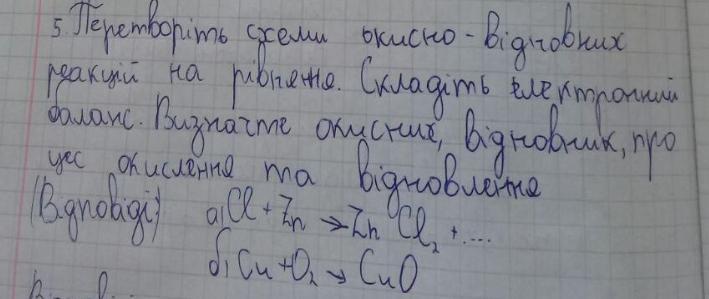 5. Перетворіть схеми окисно-відновних
реакцій на рівнення. Складіть електронний
баланс. Визначте окисник, відновник, про
цес окислення та відновлення
(Відповіді) а) Cl + Zn → Zn Cl₂ + ....
б) Cu + O₂ → CuO